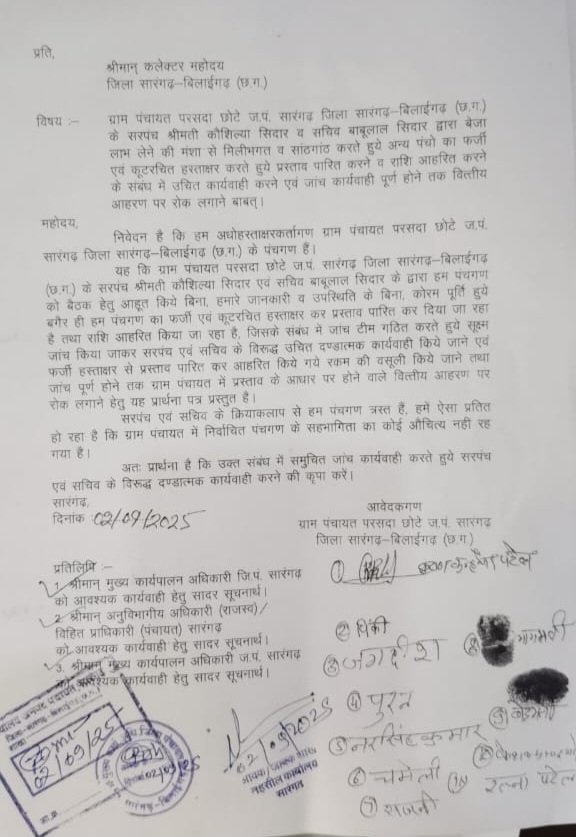 प्रति,
श्रीमान् कलेक्टर महोदय
जिला सारंगढ़–बिलाईगढ़ (छ.ग.)
विषय :–
ग्राम पंचायत परसदा छोटे ज.पं. सारंगढ़ जिला सारंगढ़–बिलाईगढ़ (छ.ग.)
के सरपंच श्रीमती कौशिल्या सिदार व सचिव बाबूलाल सिदार द्वारा बेजा
लाभ लेने की मंशा से मिलीभगत व सांठगांठ करते हुये अन्य पंचो का फर्जी
एवं कूटरचित हस्ताक्षर करते हुये प्रस्ताव पारित करने व राशि आहरित करने
के संबंध में उचित कार्यवाही करने एवं जांच कार्यवाही पूर्ण होने तक वित्तीय
आहरण पर रोक लगाने बाबत्।
महोदय,
निवेदन है कि हम अधोहस्ताक्षरकर्तागण ग्राम पंचायत परसदा छोटे ज.पं.
सारंगढ़ जिला सारंगढ़–बिलाईगढ़ (छ.ग.) के पंचगण हैं।
यह कि ग्राम पंचायत परसदा छोटे ज.पं. सारंगढ़ जिला सारंगढ़–बिलाईगढ़
(छ.ग.) के सरपंच श्रीमती कौशिल्या सिदार एवं सचिव बाबूलाल सिदार के द्वारा हम पंचगण
को बैठक हेतु आहूत किये बिना, हमारे जानकारी व उपस्थिति के बिना, कोरम पूर्ति हुये
बगैर ही हम पंचगण का फर्जी एवं कूटरचित हस्ताक्षर कर प्रस्ताव पारित कर दिया जा रहा
है तथा राशि आहरित किया जा रहा है, जिसके संबंध में जांच टीम गठित करते हुये सूक्ष्म
जांच किया जाकर सरपंच एवं सचिव के विरूद्ध उचित दण्डात्मक कार्यवाही किये जाने एवं
फर्जी हस्ताक्षर से प्रस्ताव पारित कर आहरित किये गये रकम की वसूली किये जाने तथा
जांच पूर्ण होने तक ग्राम पंचायत में प्रस्ताव के आधार पर होने वाले वित्तीय आहरण पर
रोक लगाने हेतु यह प्रार्थना पत्र प्रस्तुत है।
सरपंच एवं सचिव के क्रियाकलाप से हम पंचगण त्रस्त हैं, हमें ऐसा प्रतित
हो रहा है कि ग्राम पंचायत में निर्वाचित पंचगण के सहभागिता का कोई औचित्य नही रह
गया है।
अतः प्रार्थना है कि उक्त संबंध में समुचित जांच कार्यवाही करते हुये सरपंच
एवं सचिव के विरूद्ध दण्डात्मक कार्यवाही करने की कृपा करें।
सारंगढ़,
दिनांक 02/09/2025
आवेदकगण
ग्राम पंचायत परसदा छोटे ज.पं. सारंगढ़
जिला सारंगढ़–बिलाईगढ़ (छ.ग)
प्रतिलिपि :–
1. श्रीमान् मुख्य कार्यपालन अधिकारी जि.पं. सारंगढ़
को आवश्यक कार्यवाही हेतु सादर सूचनार्थ।
2. श्रीमान् अनुविभागीय अधिकारी (राजस्व)/
विहित प्राधिकारी (पंचायत) सारंगढ़
को आवश्यक कार्यवाही हेतु सादर सूचनार्थ।
3. श्रीमान् मुख्य कार्यपालन अधिकारी ज.पं. सारंगढ़
को आवश्यक कार्यवाही हेतु सादर सूचनार्थ।
① पटेल
② पिंकी
③ जगदीश
④ पुरन
⑤ नरसिंह कुमार
⑥ चमेली
⑦ सजनी
⑧ भागमती
⑨
⑩ रत्ना पटेल
02/09/25
02/09/2025